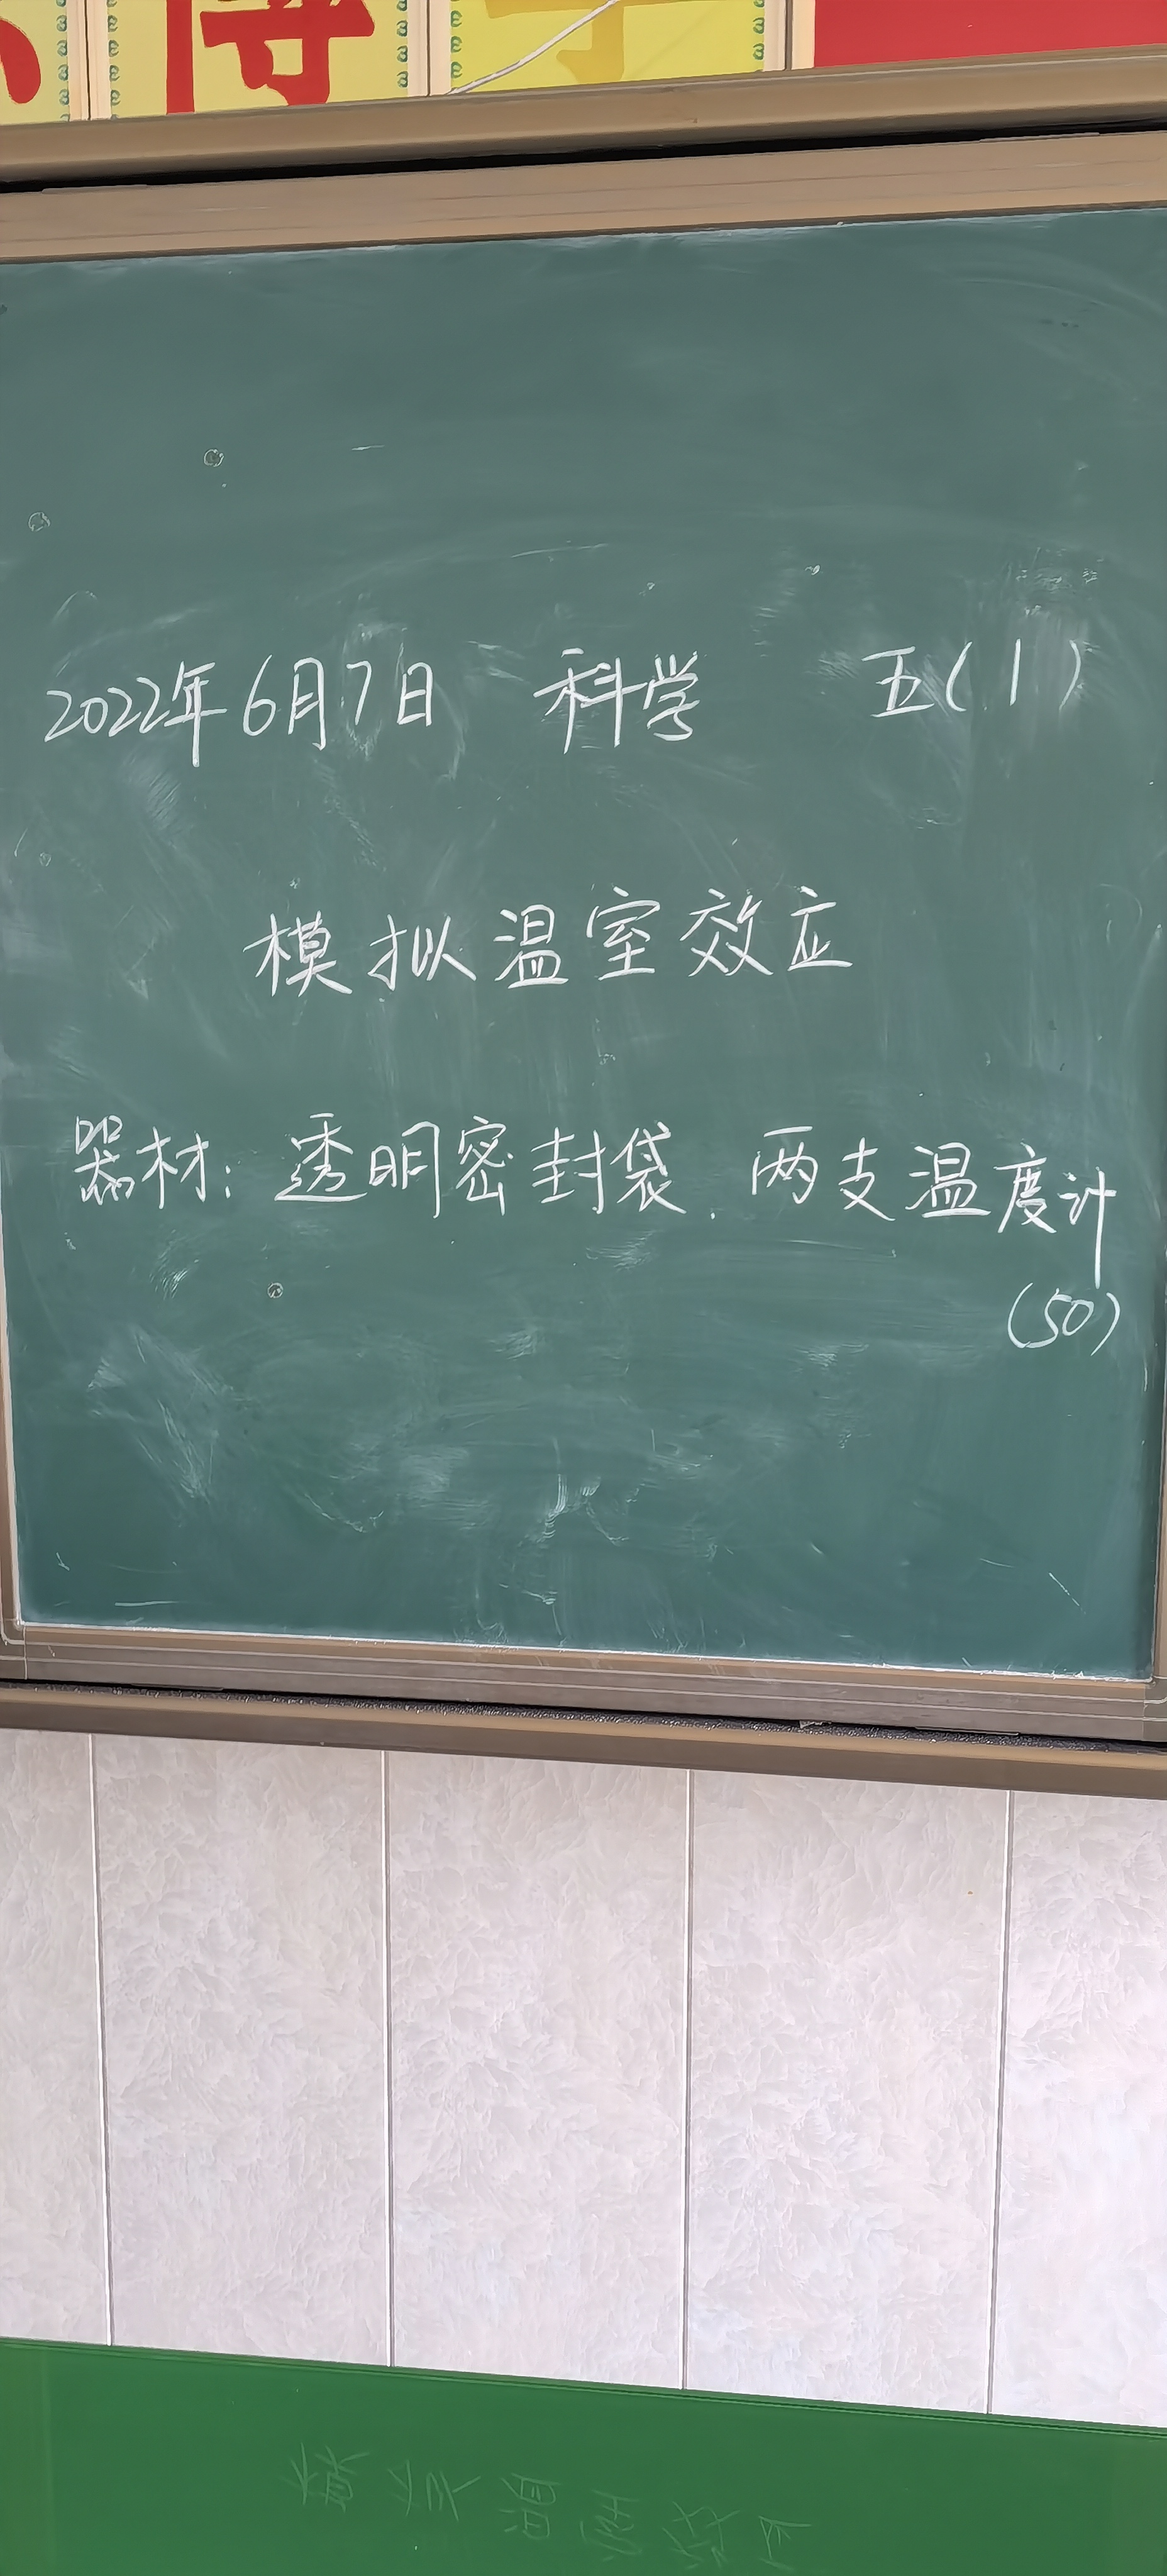 博学
2022年6月7日 科学 五(1)
模拟温室效应
器材:透明密封袋.两支温度计
(50)